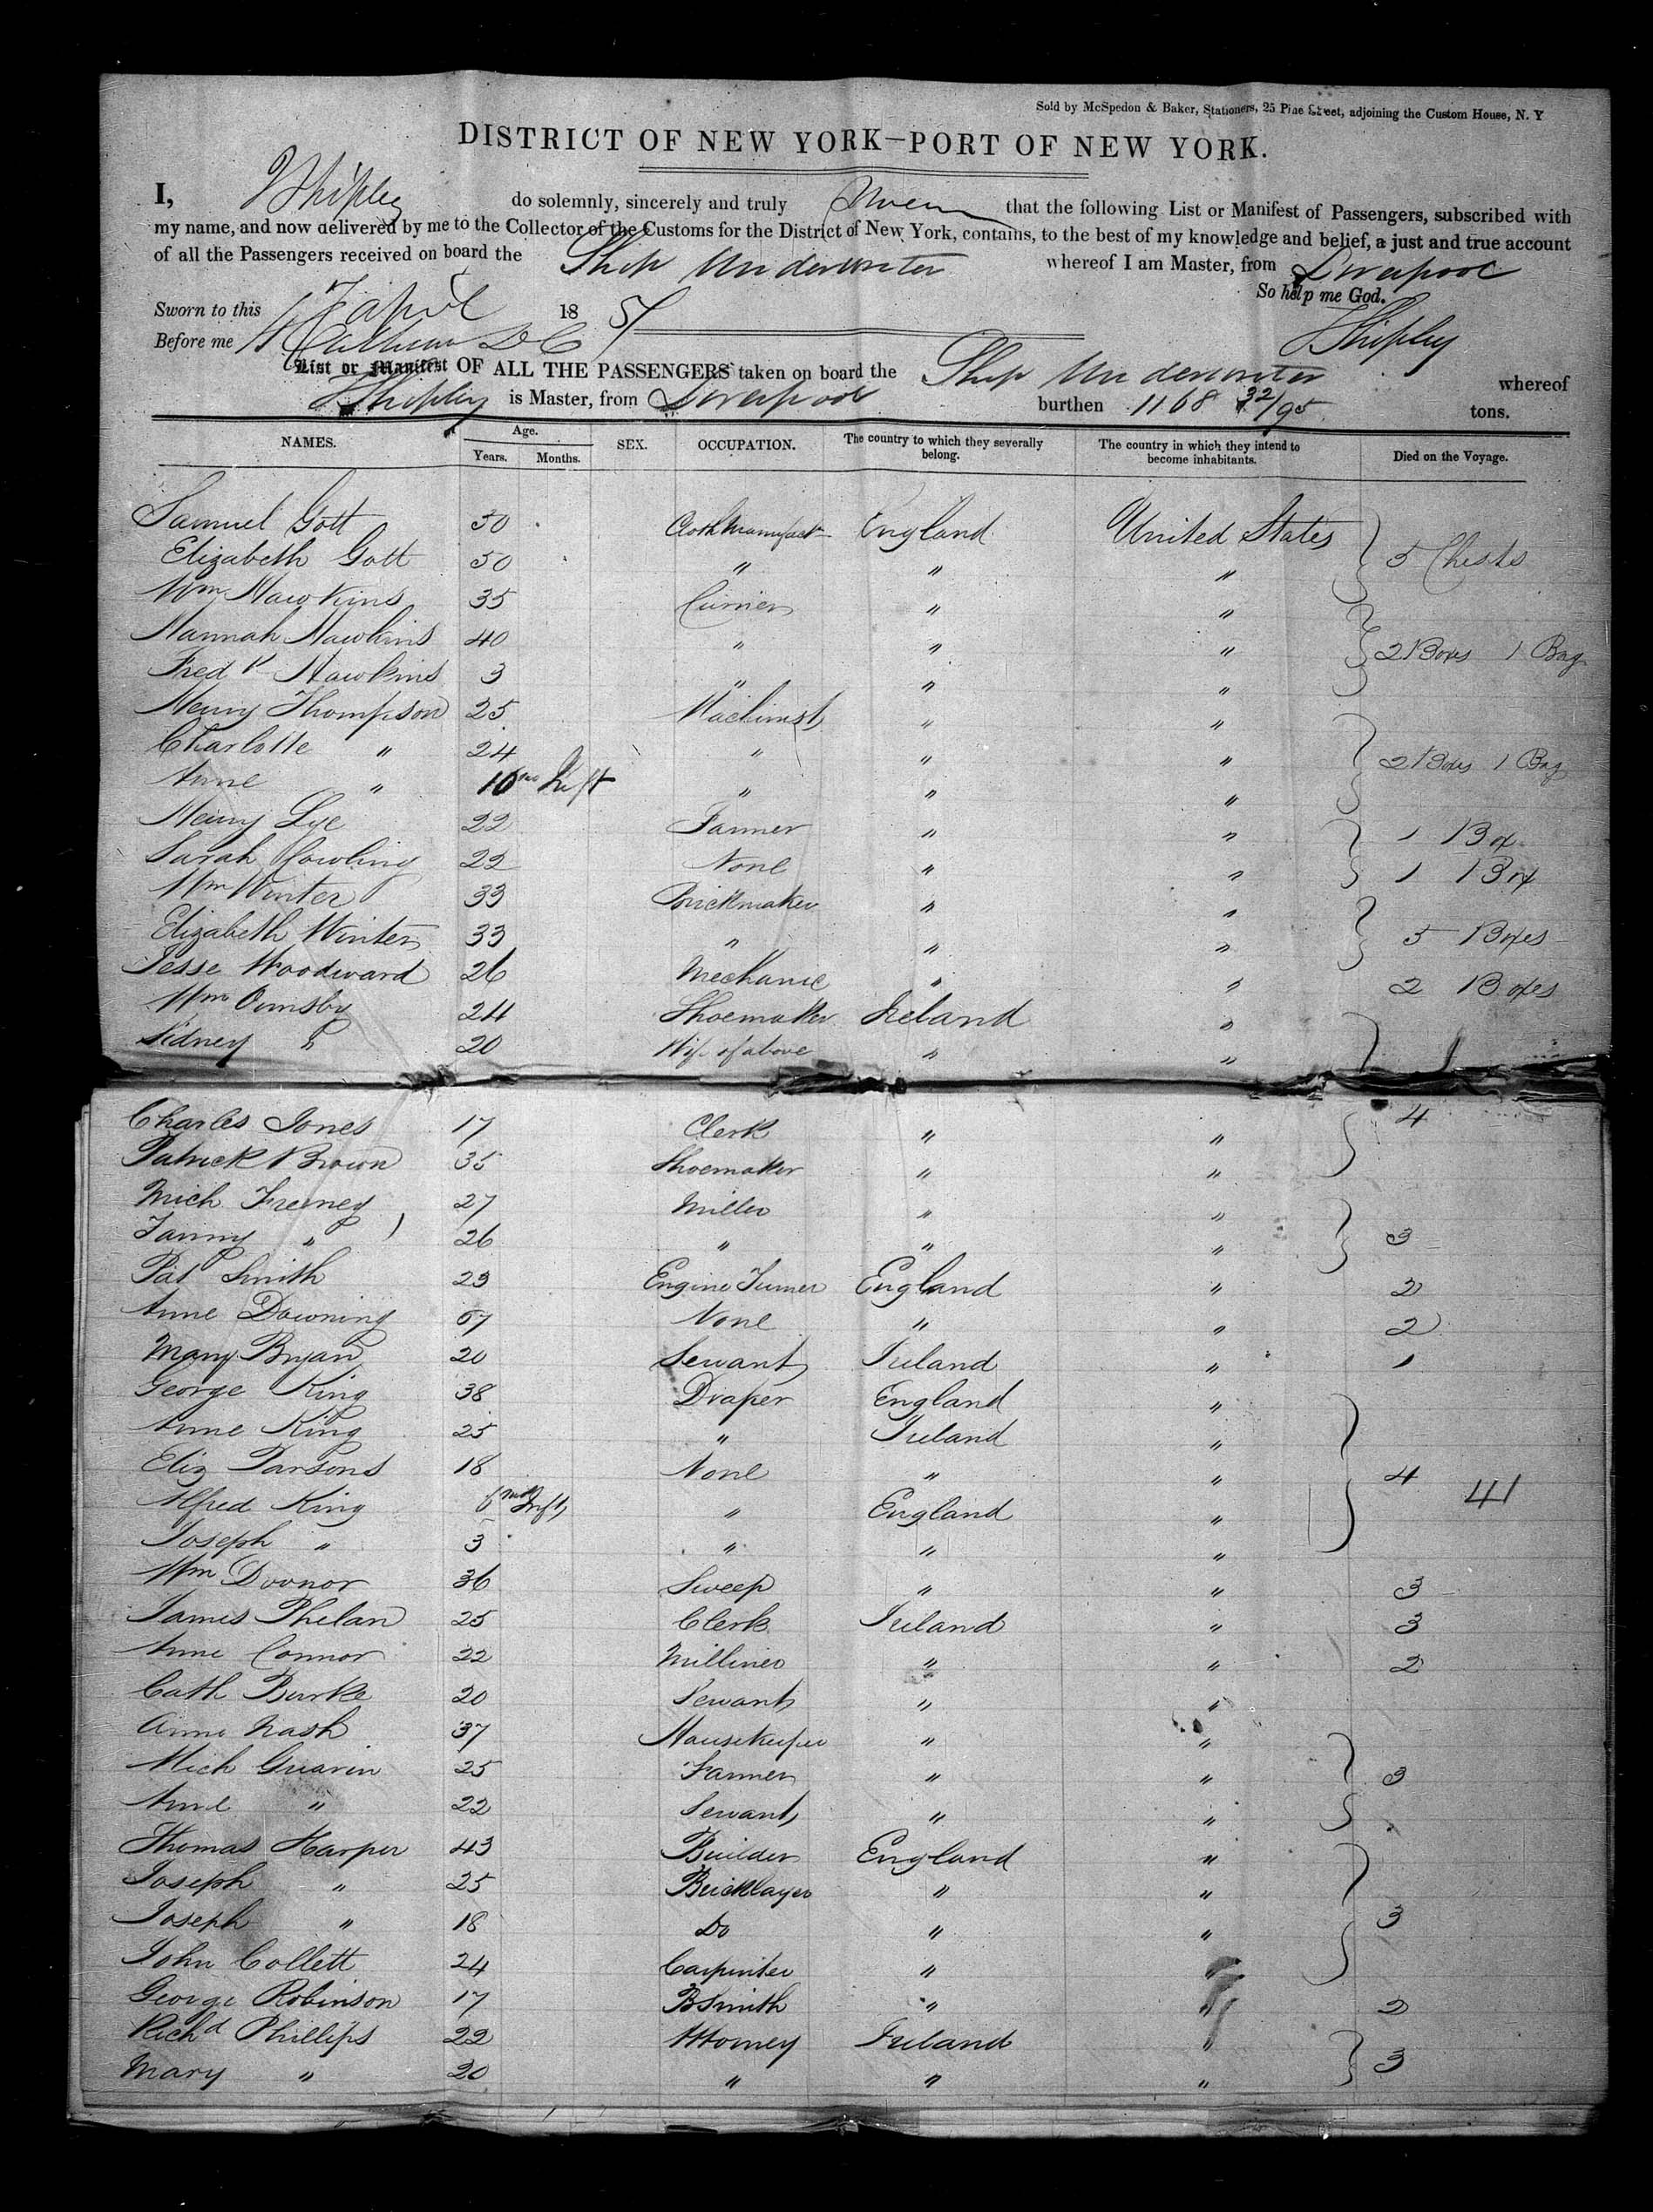 Sold by McSpedon & Baker, Stationers, 25 Pine Street, adjoining the Custom House, N. Y
DISTRICT OF NEW YORK—PORT OF NEW YORK.
I, Shipley do solemnly, sincerely and truly Swear that the following List or Manifest of Passengers, subscribed with
my name, and now delivered by me to the Collector of the Customs for the District of New York, contains, to the best of my knowledge and belief, a just and true account
of all the Passengers received on board the Ship Underwriter whereof I am Master, from Liverpool
So help me God.
Sworn to this 7 April 18 51
Before me DC Shipley
List or Manifest OF ALL THE PASSENGERS taken on board the Ship Underwriter whereof
Shipley is Master, from Liverpool burthen 1168 32/95 tons.
NAMES. Age. Years. Months. SEX. OCCUPATION. The country to which they severally belong. The country in which they intend to become inhabitants. Died on the Voyage.
Samuel Gott 50 Cloth Manufactr England United States
Elizabeth Gott 50 " " " 5 Chests
Wm Hawkins 35 Currier " "
Hannah Hawkins 40 " " " 2 Boxes 1 Bag
Fredk Hawkins 3 " " "
Henry Thompson 25 Machinist " "
Charlotte " 24 " " " 2 Boxes 1 Bag
Anne " 10 ms Inft " " "
Henry Lye 22 Farmer " " 1 Box
Sarah Cowling 22 None " " 1 Box
Wm Winter 33 Brickmaker " "
Elizabeth Winter 33 " " " 5 Boxes
Jesse Woodward 26 Mechanic " " 2 Boxes
Wm Ormsby 24 Shoemaker Ireland "
Sidney " 20 Wife of above " "
Charles Jones 17 Clerk " " 4
Patrick Brown 35 Shoemaker " "
Mich Freeney 27 Miller " "
Fanny " 26 " " " 3
Pat Smith 23 Engine Turner England " 2
Anne Downing 57 None " " 2
Mary Bryan 20 Servant Ireland " 1
George King 38 Draper England "
Anne King 25 " Ireland "
Eliz Parsons 18 None " " 4
Alfred King 6 ms Inft " England " 41
Joseph " 3 " " "
Wm Doonor 36 Sweep " " 3
James Phelan 25 Clerk Ireland " 3
Anne Connor 22 Milliner " " 2
Cath Burke 20 Servant " "
Anne Nash 37 Housekeeper " "
Mich Guarin 25 Farmer " " 3
Anne " 22 Servant " "
Thomas Harper 43 Builder England "
Joseph " 25 Bricklayer " "
Joseph " 18 Do " " 3
John Collett 24 Carpenter " "
George Robinson 17 BSmith " " 2
Richd Phillips 22 Attorney Ireland "
Mary " 20 " " " 3